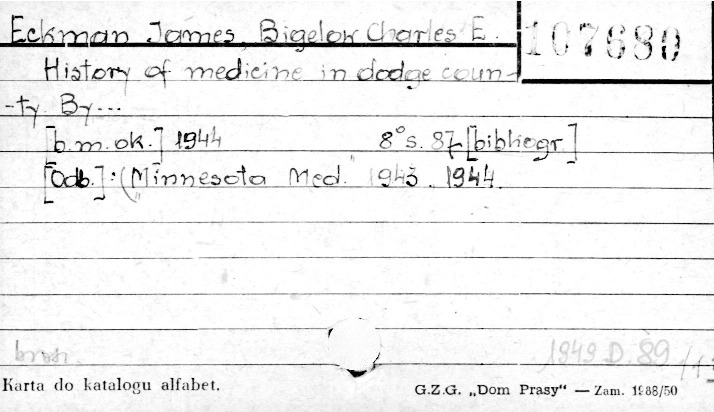 Eckman James, Bigelow Charles E.
107680
History of medicine in dodge coun-
-ty. By...
[b.m.ok.] 1944 8° s. 87 [bibliogr.]
[Odb.]: („Minnesota Med." 1943. 1944.
brosz.
1949 D. 89
Karta do katalogu alfabet.
G.Z.G. „Dom Prasy“ — Zam. 1988/50